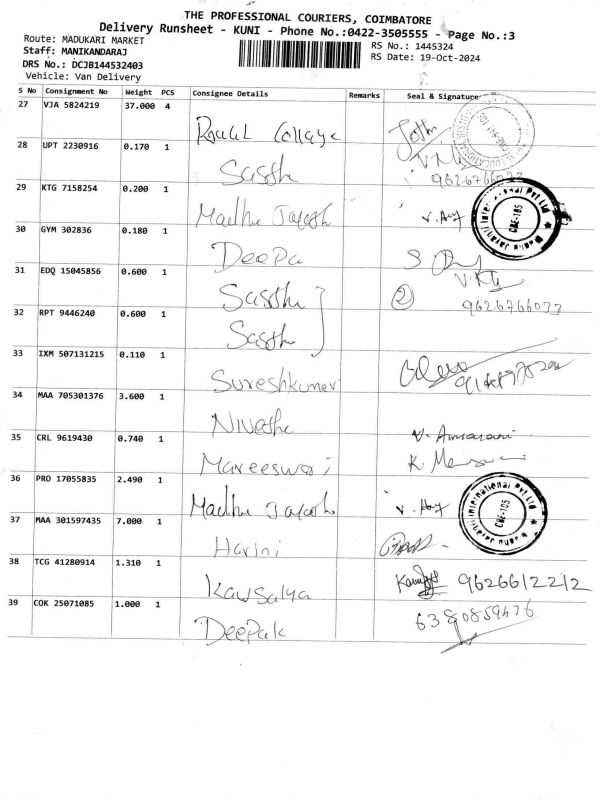 THE PROFESSIONAL COURIERS, COIMBATORE
Delivery Runsheet - KUNI - Phone No.:0422-3505555 - Page No.:3
Route: MADUKARI MARKET
RS No.: 1445324
Staff: MANIKANDARAJ
RS Date: 19-Oct-2024
DRS No.: DCJB144532403
Vehicle: Van Delivery
S No Consignment No Weight PCS Consignee Details Remarks Seal & Signature
27 VJA 5824219 37.000 4
College
28 UPT 2230916 0.170 1
9626766033
29 KTG 7158254 0.200 1
Madhu
30 GYM 302836 0.180 1
Deepa
31 EDQ 15045856 0.600 1
2 9626766033
32 RPT 9446240 0.600 1
33 IXM 507131215 0.110 1
Sureshkumar
34 MAA 705301376 3.600 1
Nivetha
35 CRL 9619430 0.740 1
Mareeswari
36 PRO 17055835 2.490 1
Madhu
37 MAA 301597435 7.000 1
Harini
38 TCG 41280914 1.310 1
Kawsalya 9626612212
39 COK 25071085 1.000 1
Deepak 6380859476
International Pvt Ltd
CBE-105
International Pvt Ltd
CBE-105